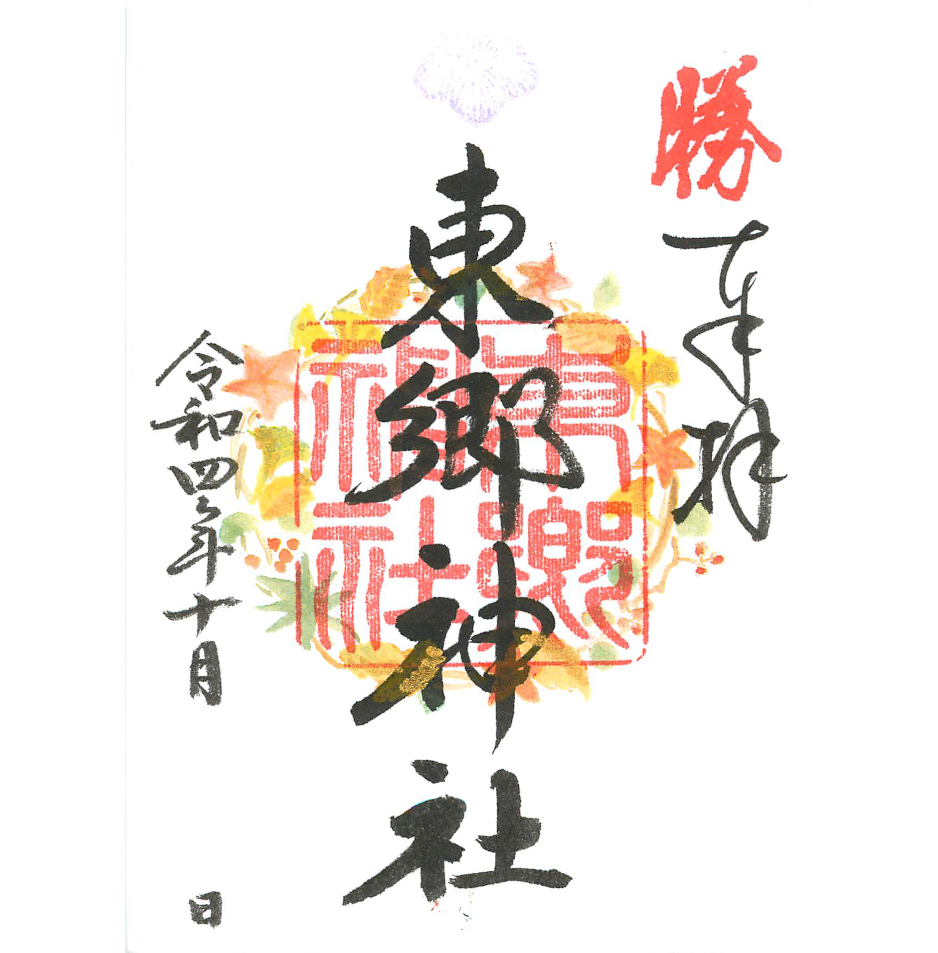 勝
奉拝
東郷神社
東郷神社
令和四年十月 日